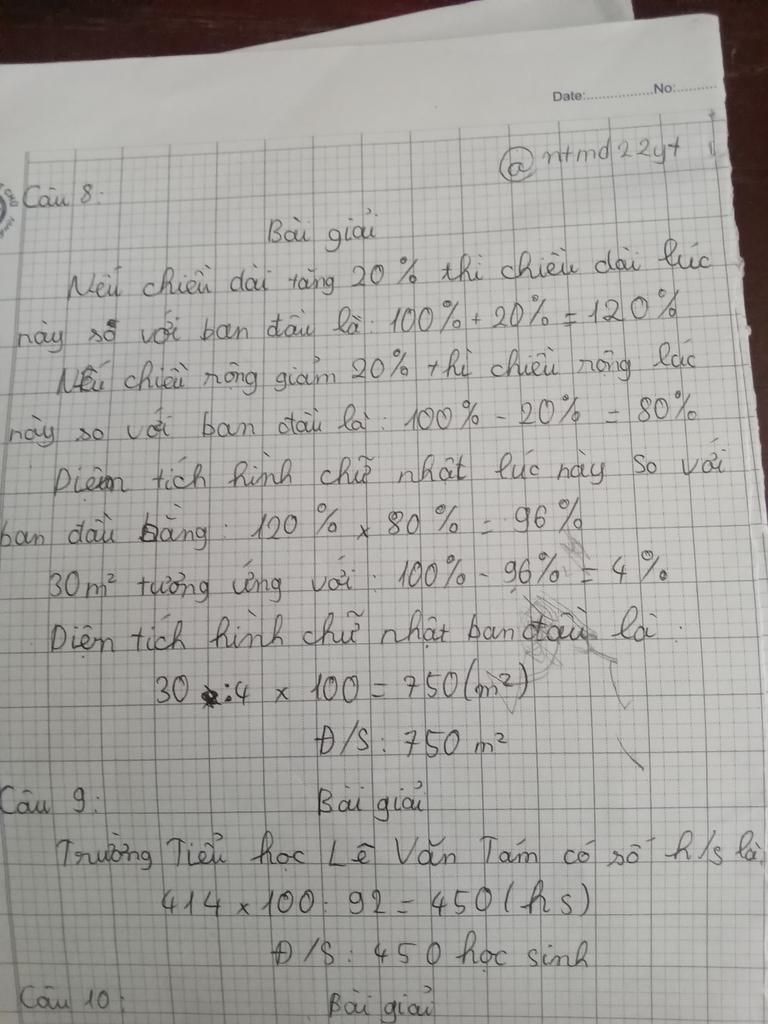 Date:................No:..........
@ntmd22yt
Câu 8:
Bài giải
Nếu chiều dài tăng 20% thì chiều dài lúc
này so với ban đầu là: 100% + 20% = 120%
Nếu chiều rộng giảm 20% thì chiều rộng lúc
này so với ban đầu là: 100% - 20% = 80%
Diện tích hình chữ nhật lúc này so với
ban đầu bằng: 120% x 80% = 96%
30m² tương ứng với: 100% - 96% = 4%
Diện tích hình chữ nhật ban đầu là:
30 :4 x 100 = 750(m²)
Đ/S: 750 m²
Câu 9:
Bài giải
Trường Tiểu học Lê Văn Tám có số h/s là
414 x 100: 92 = 450(hs)
Đ/S: 450 học sinh
Câu 10:
Bài giải